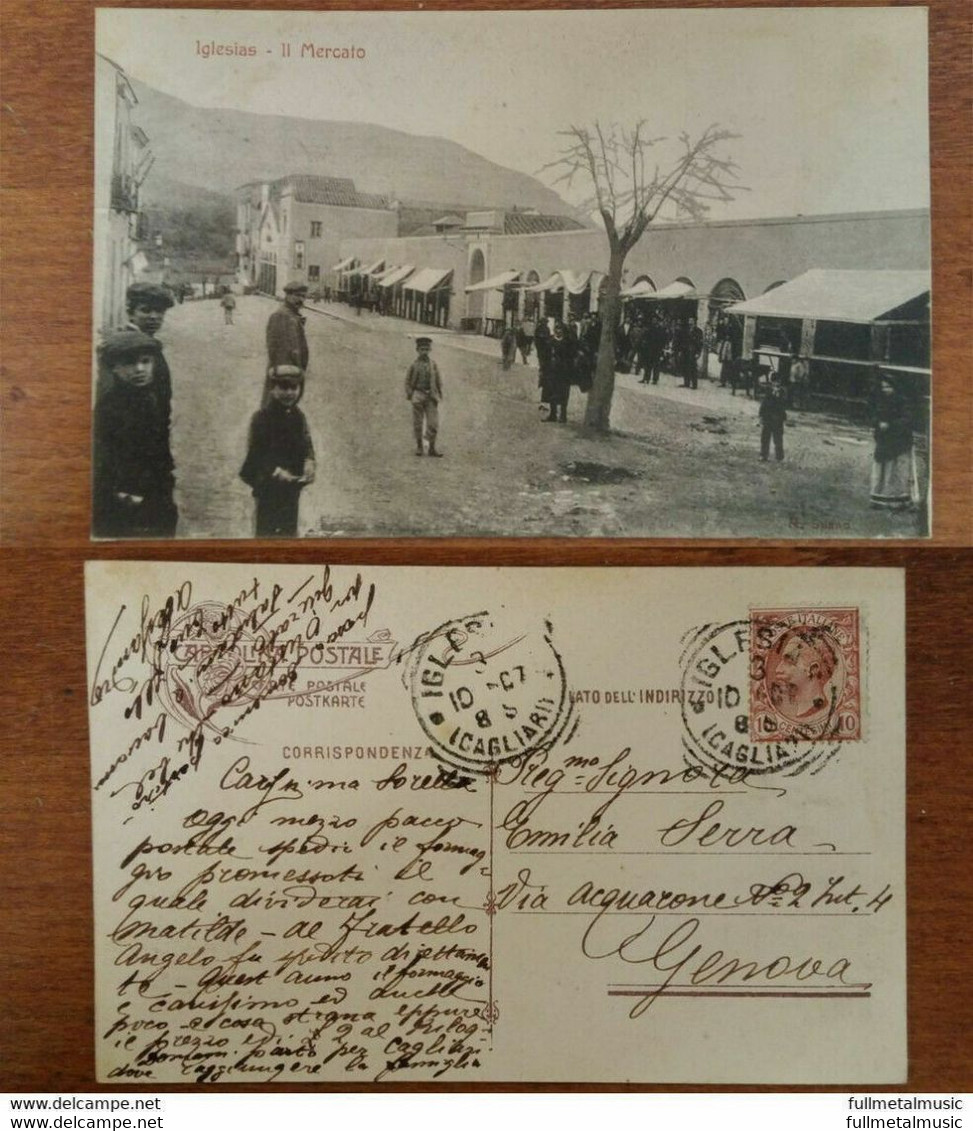 Iglesias - Il Mercato
CARTOLINA POSTALE
CARTE POSTALE
POSTKARTE
LATO DELL'INDIRIZZO
CORRISPONDENZA
IGLESIAS
10
(CAGLIARI)
IGLESIAS
10
(CAGLIARI)
10 10
Preg.ma Signora
Emilia Serra
Via Acquarone No 2 Int. 4
Genova
Cariss.ma Sorella
Oggi mezzo pacco
postale spedii il formag-
gio promessoti il
quale dividerai con
Matilde - al Fratello
Angelo fu spedito direttamen
te - Quest'anno il formaggio
e carissimo ed anche
poco e cosa strana eppure
il prezzo è di £ 2 al Kilog-
Domani parto per Cagliari
dove raggiungere la famiglia
fullmetalmusic
fullmetalmusic
www.delcampe.net
www.delcampe.net